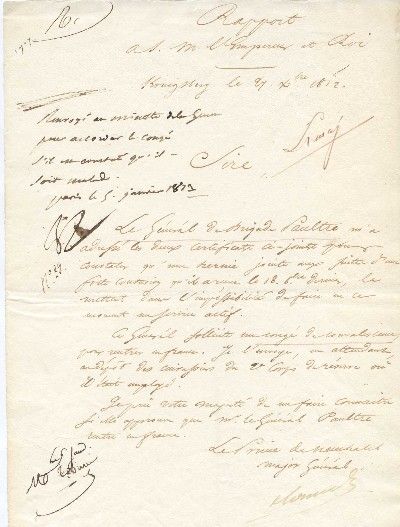 Rapport
a S. M. l'Empereur et Roi
Konigsberg le 27 Xbre 1812.
Renvoyé au ministre de la Guerre
pour accorder le congé
s'il est constaté qu'il
soit malade.
paris le 5 janvier 1813
Sire,
Le Général de Brigade Paultre m'a
adressé les deux certificats ci-joints pour
constater qu'une hernie jointe aux suites d'une
forte contusion qu'il a reçue le 18. 9bre dernier, le
mettent dans l'impossibilité de faire en ce
moment un service actif.
Ce Général sollicite un congé de convalescence
pour rentrer en france. Je l'envoye, en attendant
au dépôt des cuirassiers du 2e Corps de reserve où
il était employé.
Je prie votre majesté de me faire connaitre
si elle approuve que Mr. le Général Paultre
rentre en france.
Le Prince de Neuchatel
major Général